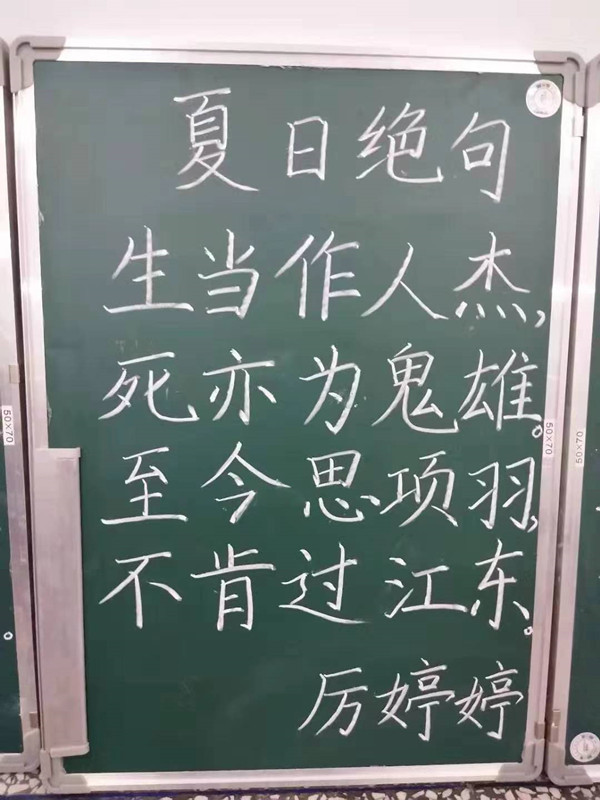 夏日绝句
生当作人杰,
死亦为鬼雄。
至今思项羽,
不肯过江东。
厉婷婷
50×70
50×70
50×70